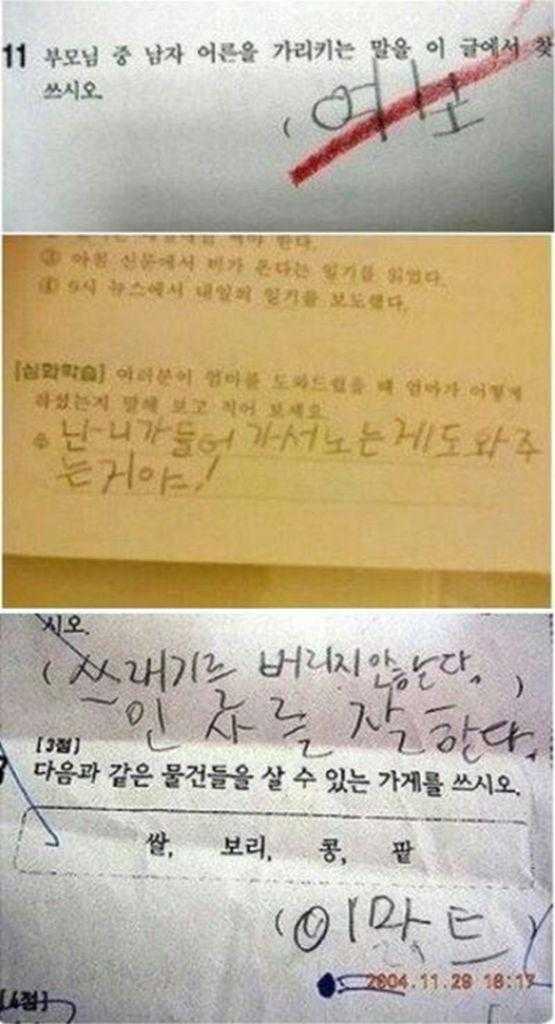 11 부모님 중 남자 어른을 가리키는 말을 이 글에서 찾
쓰시오.
( 여보
한다.
③ 아침 신문에서 비가 온다는 일기를 읽었다.
④ 9시 뉴스에서 내일의 일기를 보도했다.
[심화학습] 여러분이 엄마를 도와드렸을 때 엄마가 어떻게
하셨는지 말해 보고 적어 보세요
난 니가 들어가서 노는 게 도와주
는거야!
시오.
( 쓰래기르 버리지 안는다. )
인사를 잘 한다.
[3점]
다음과 같은 물건들을 살 수 있는 가게를 쓰시오.
쌀, 보리, 콩, 팥
( 이마트 )
2004.11.29 18:17
[4점]